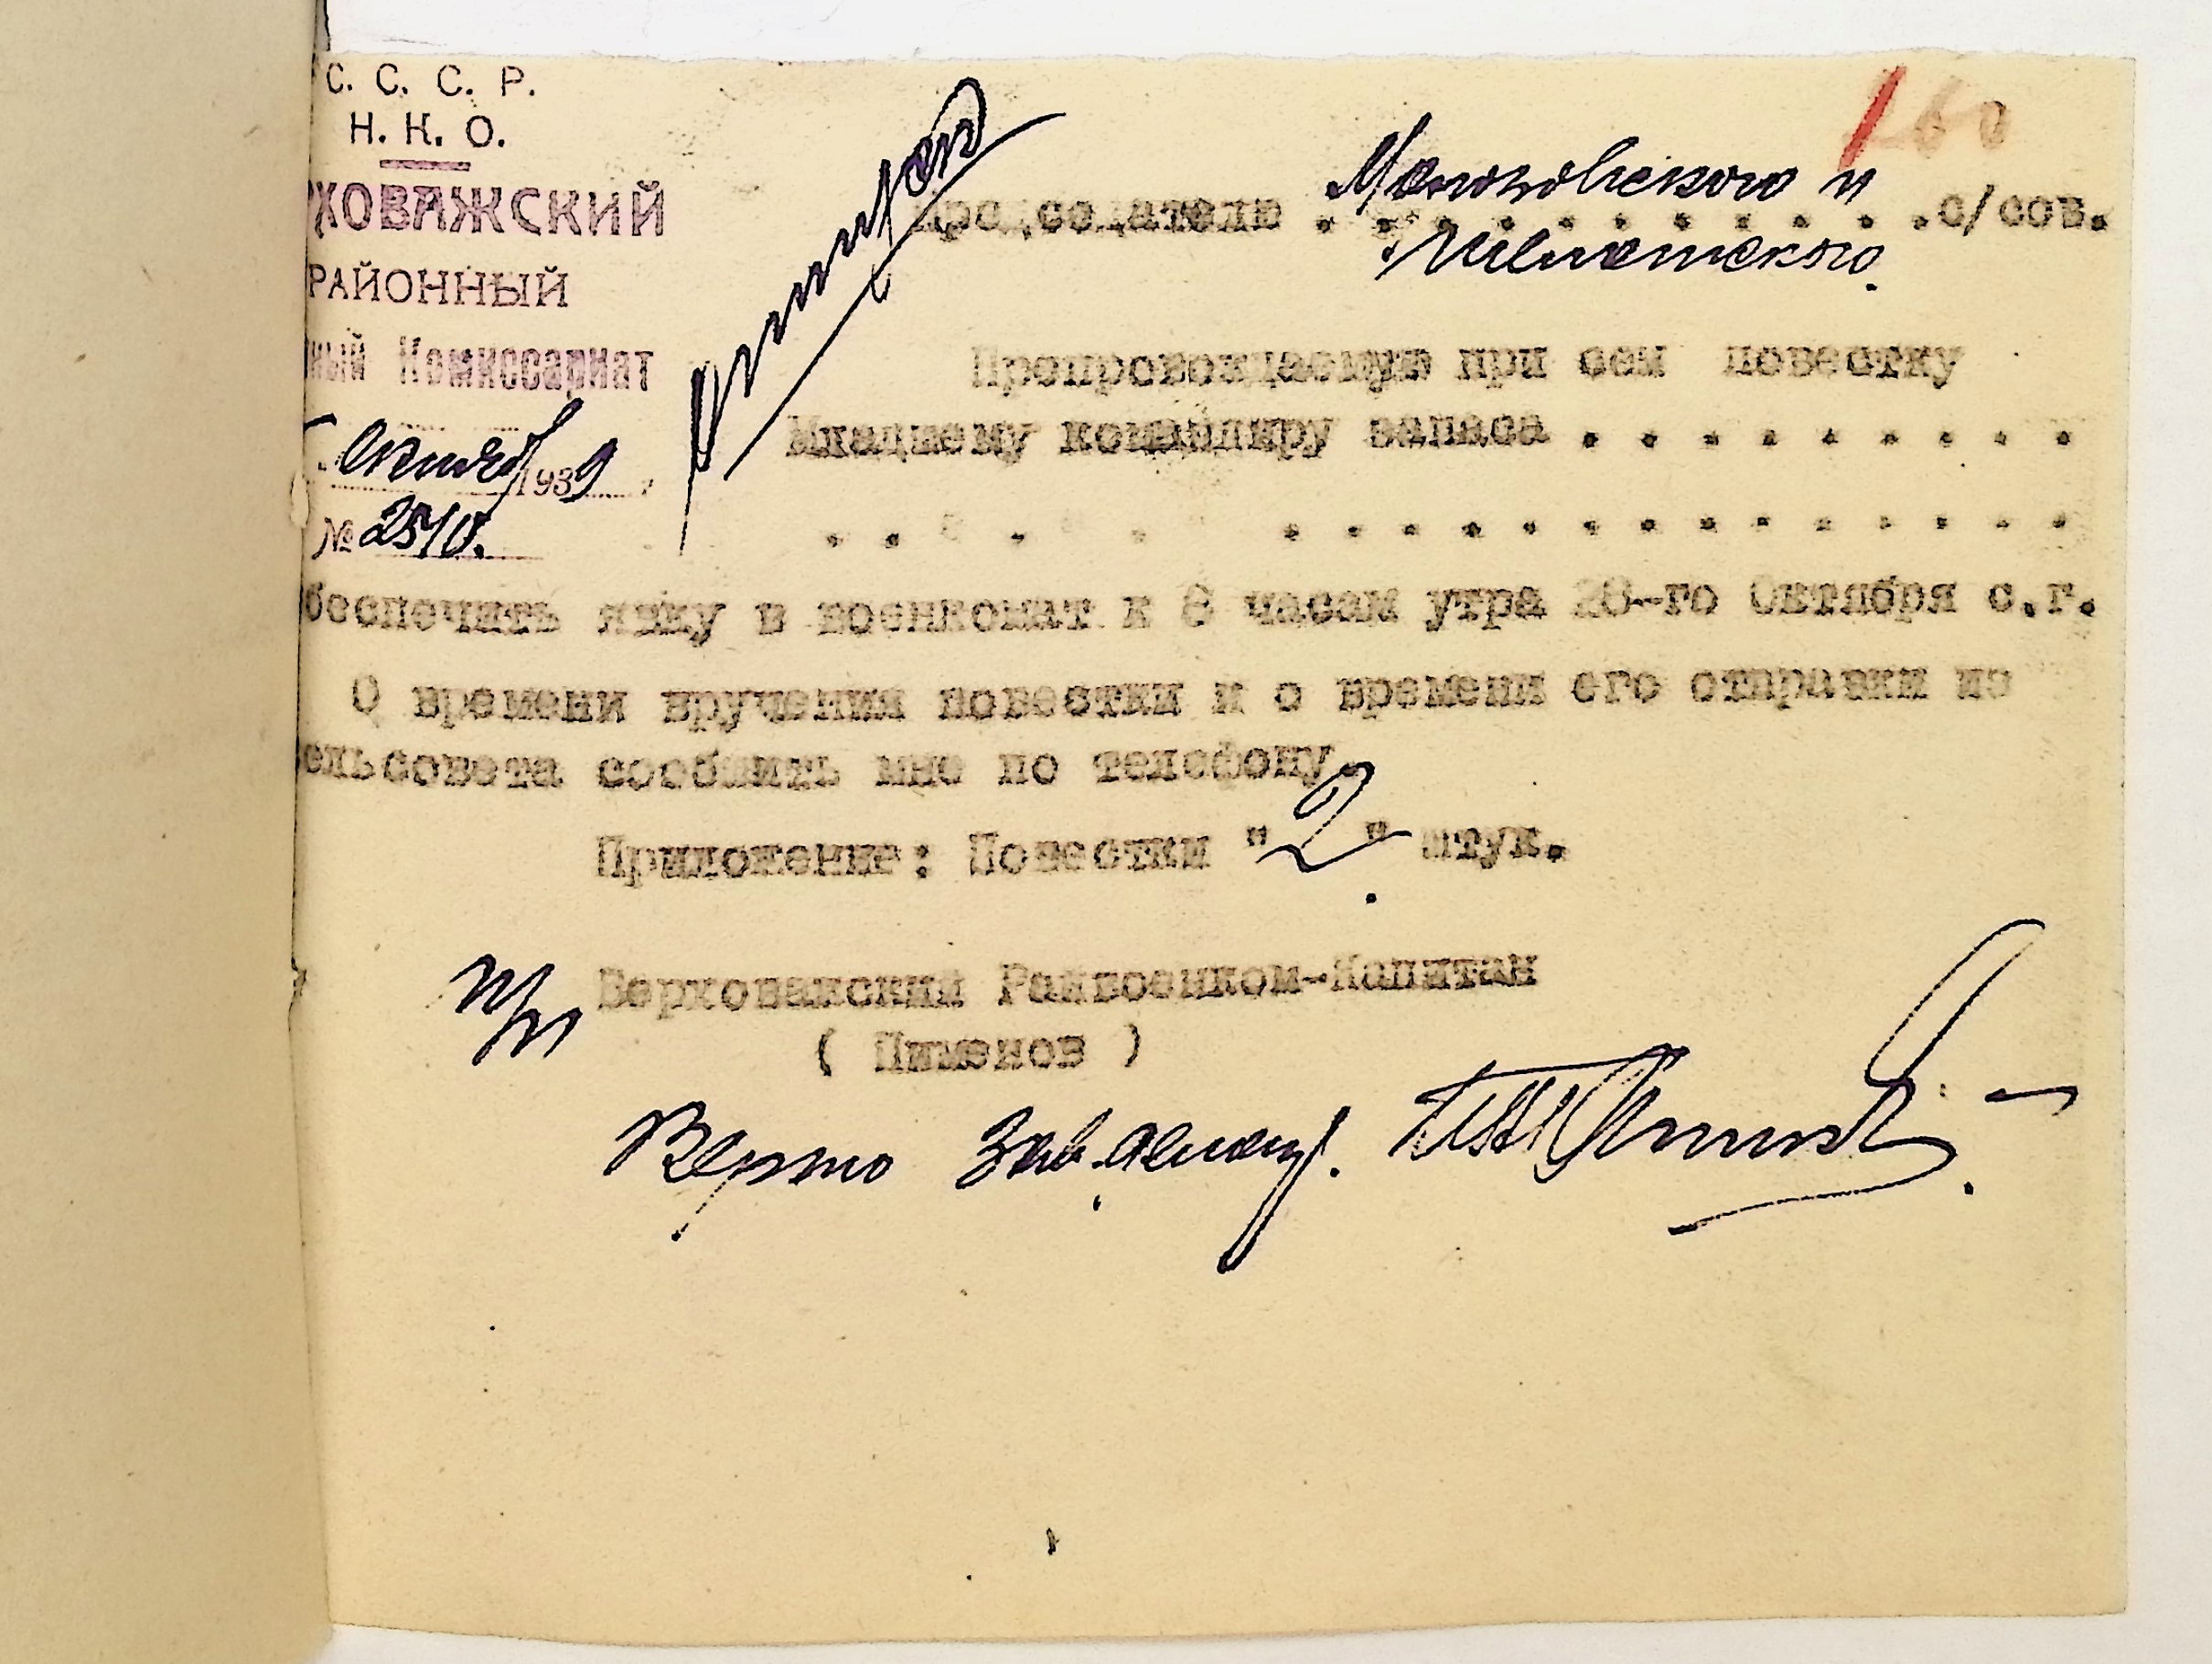 С. С. С. Р.
Н. К. О.
ХОВАЖСКИЙ
РАЙОННЫЙ
ный Комиссариат
октябр 1939
№ 2510.
Председателю . . . . . . . . . . с/сов.
Шелотского.
Препровождаемую при сем повестку
Младшему командиру запаса . . . . . . . . .
. . . . . . . . . . . . . . . . . .
беспечить явку в военкомат к 8 часам утра 28-го Октября с.г.
О времени вручения повестки и о времени его отправки из
ельсовета сообщить мне по телефону.
Приложение: Повестки "2" штук.
п/п Верховажский Райвоенком-Капитан
( Пименов )
Верно Зав.делопр.